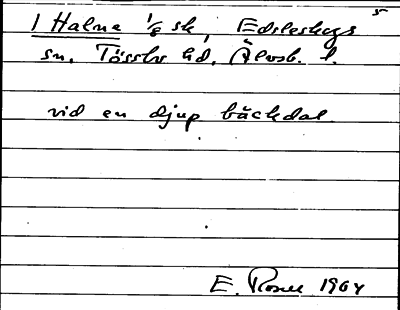 1 Halna 1/8 sk, Edsleskogs s
sn, Tössbo hd, Älvsb. l.
vid en djup bäckdal
E. Rosell 1964